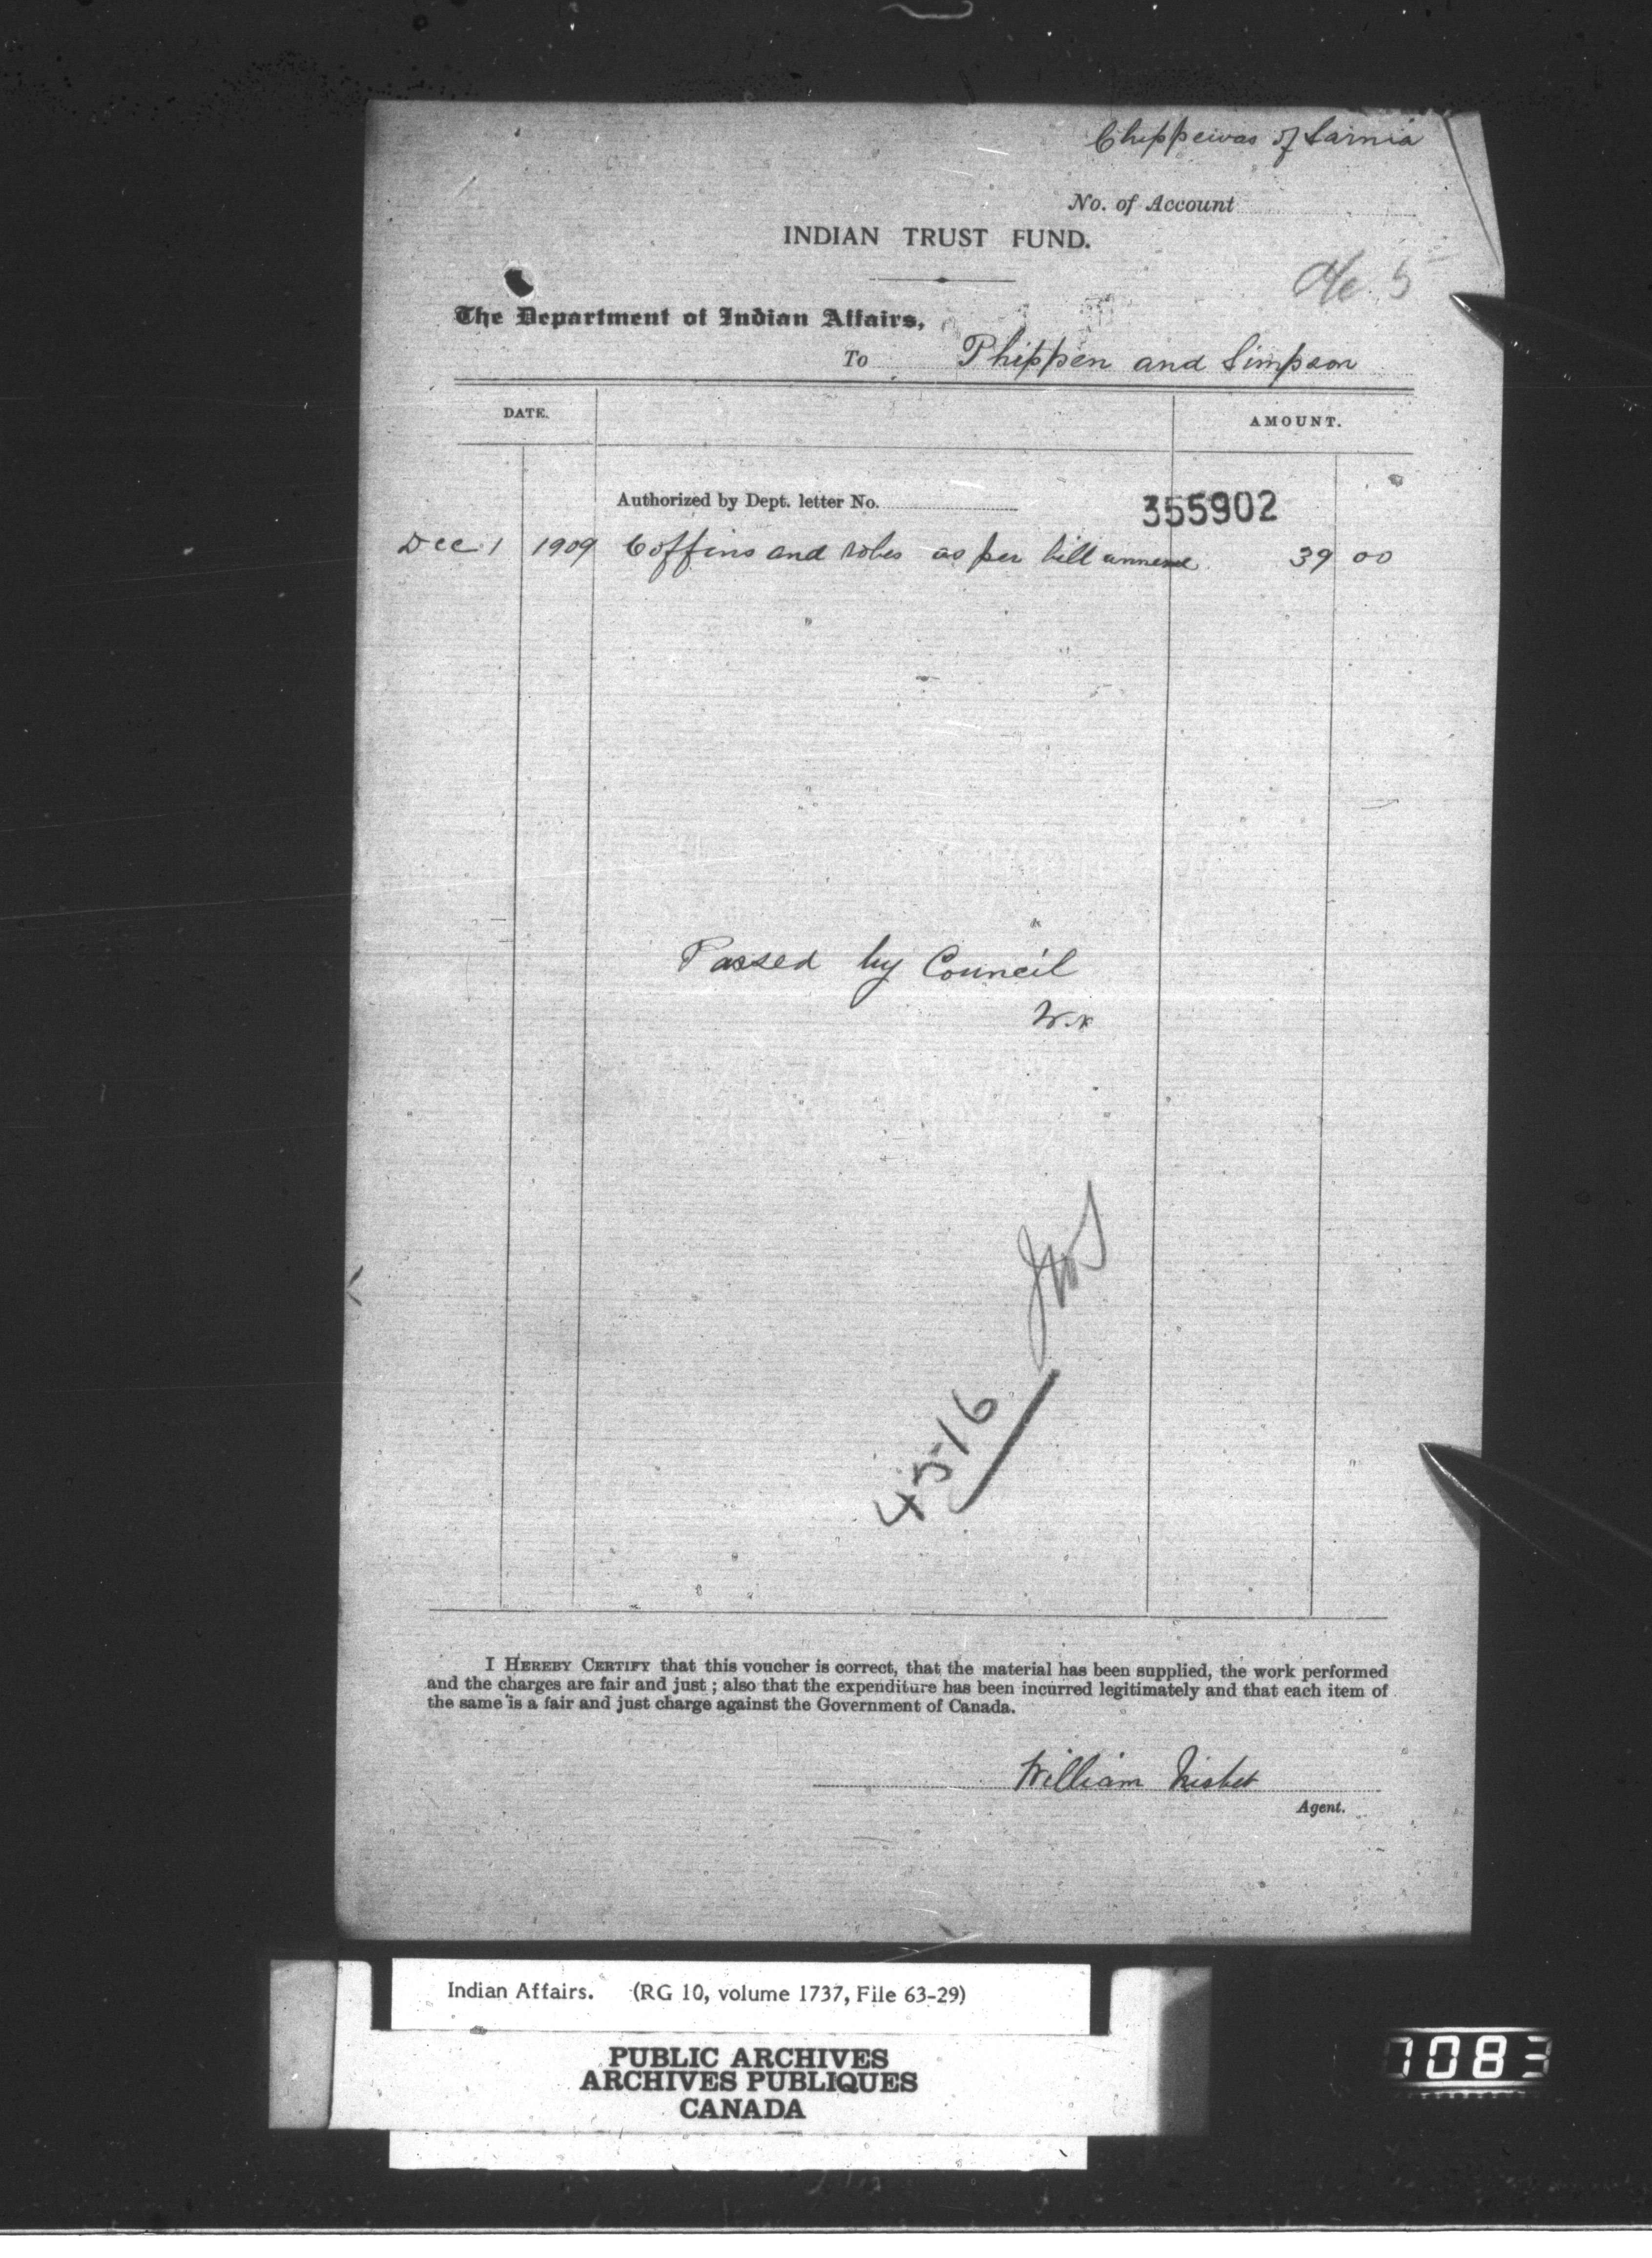 Chippewas of Sarnia
No. of Account
INDIAN TRUST FUND.
a/c. 5
The Department of Indian Affairs,
To Phippen and Simpson
DATE. AMOUNT.
Authorized by Dept. letter No. 355902
Dec 1 1909 Coffins and robes as per bill annexed 39 00
Passed by Council
W.N
4516
I HEREBY CERTIFY that this voucher is correct, that the material has been supplied, the work performed
and the charges are fair and just; also that the expenditure has been incurred legitimately and that each item of
the same is a fair and just charge against the Government of Canada.
William Nisbet
Agent.
Indian Affairs. (RG 10, volume 1737, File 63-29)
PUBLIC ARCHIVES
ARCHIVES PUBLIQUES
CANADA
1083